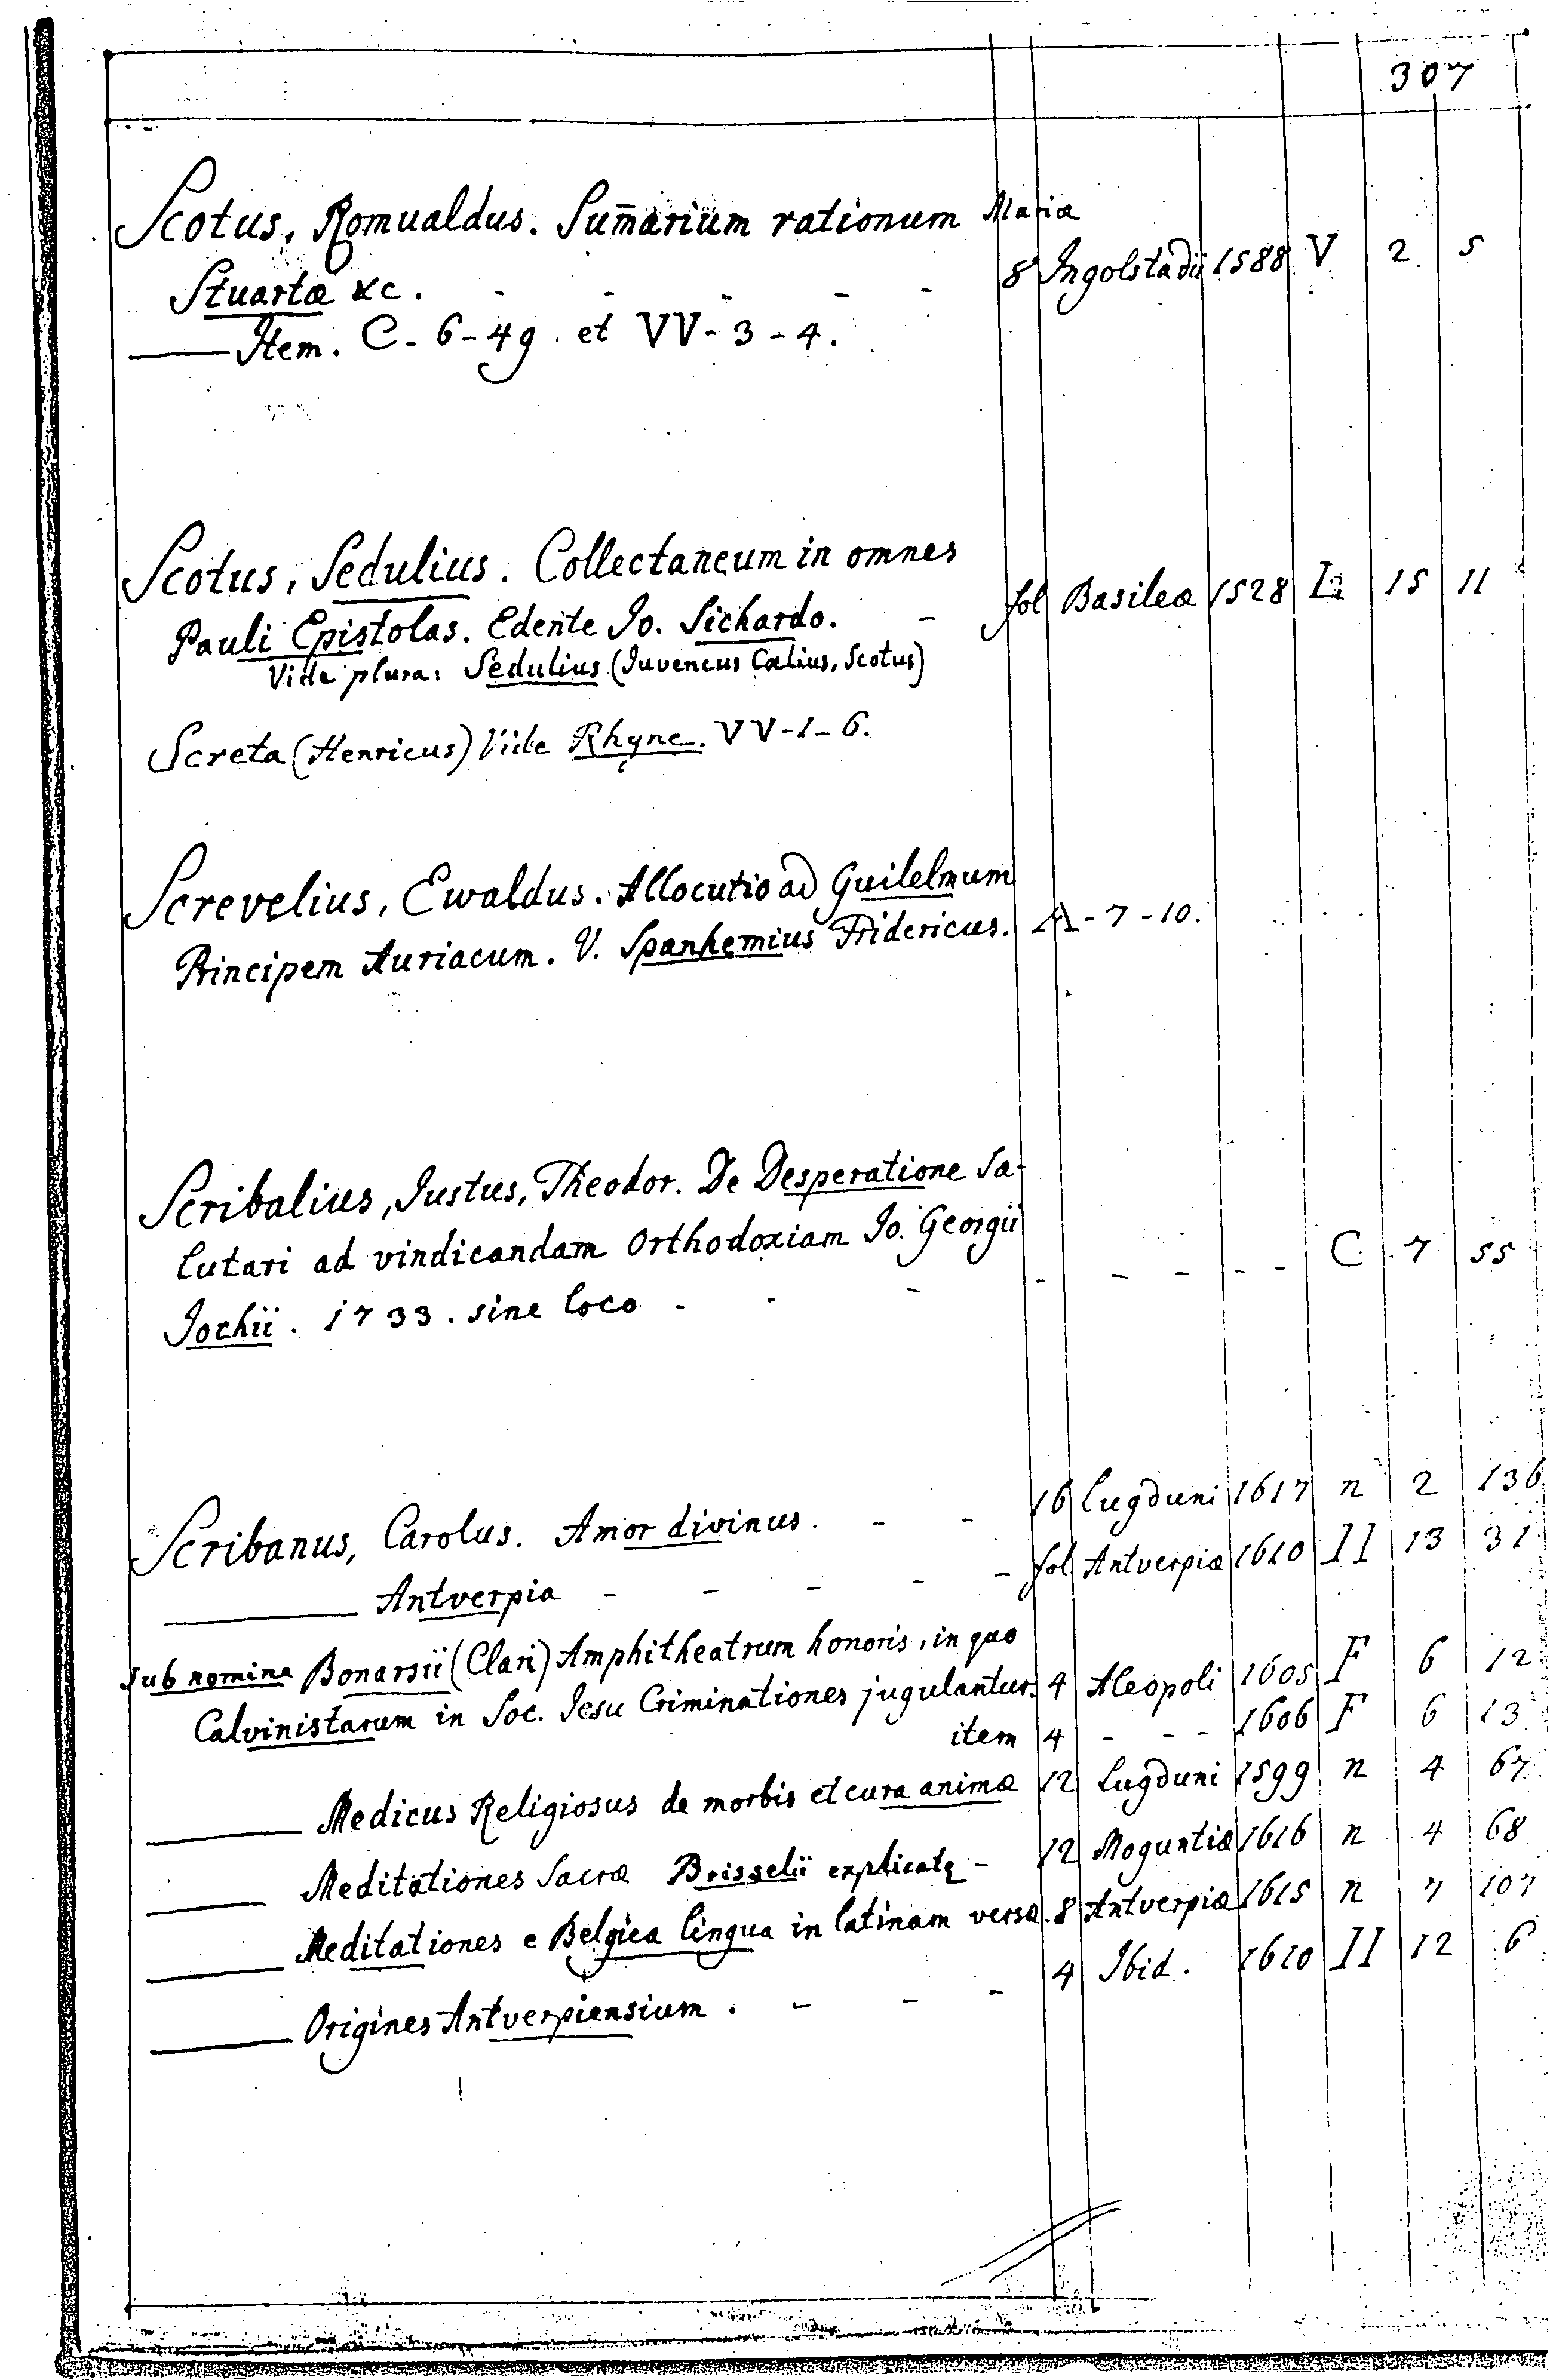 307
Scotus, Romualdus. Sum̄arium rationum Mariæ
Stuartæ &c. - - - - - 8 Ingolstadii 1588 V 2 5
—— Item. C-6-49. et VV-3-4.
Scotus, Sedulius. Collectaneum in omnes
Pauli Epistolas. Edente Jo. Sichardo. - fol Basileæ 1528 L 15 11
Vide plura: Sedulius (Juvencus Cælius, Scotus)
Screta (Henricus) Vide Rhyne. VV-1-6.
Screvelius, Ewaldus. Allocutio ad Guilelmum
Principem Auriacum. V. Spanhemius Fridericus. A-7-10.
Scribalius, Justus, Theodor. De Desperatione Sa-
lutari ad vindicandam Orthodoxiam Jo. Georgii
Jochii. 1733. sine loco - - - - - - - - C 7 55
Scribanus, Carolus. Amor divinus. - - 16 Lugduni 1617 n 2 136
—— Antverpia - - - - - fol Antverpiæ 1610 II 13 31
sub nomine Bonarsii (Clari) Amphitheatrum honoris, in quo
Calvinistarum in Soc. Jesu Criminationes jugulantur. 4 Aleopoli 1605 F 6 12
item 4 - - - 1606 F 6 13
—— Medicus Religiosus de morbis et cura animæ 12 Lugduni 1599 n 4 67
—— Meditationes Sacræ Brisselii explicatę - 12 Moguntiæ 1616 n 4 68
—— Meditationes e Belgica lingua in latinam versæ. 8 Antverpiæ 1615 n 7 107
—— Origines Antverpiensium. - - - 4 Ibid. 1610 II 12 6